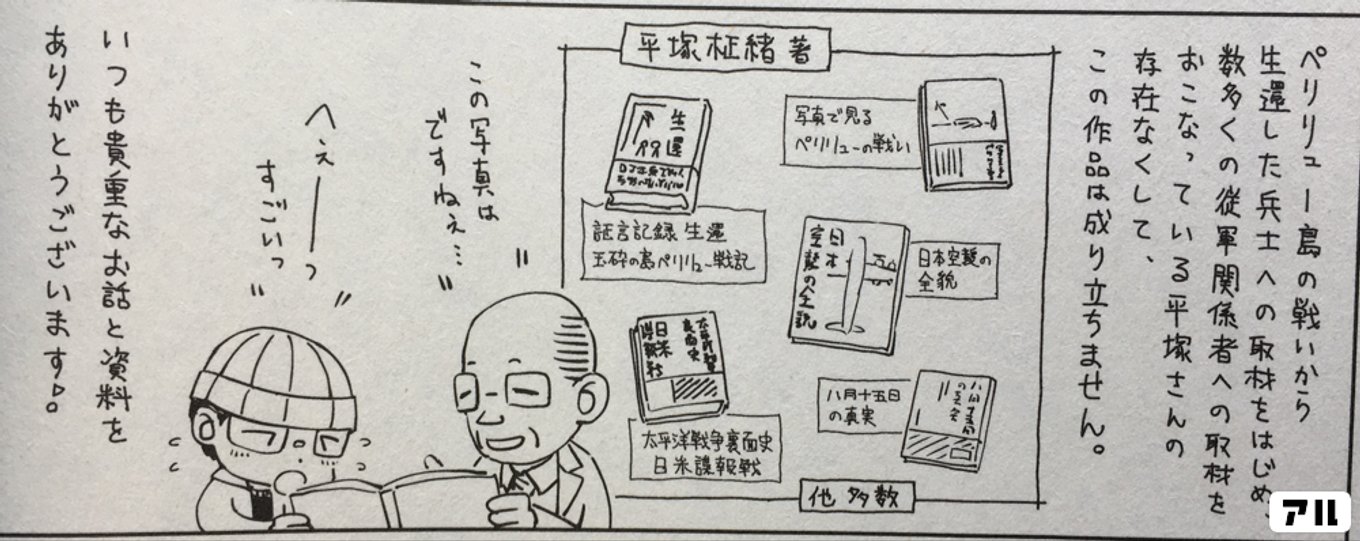 ペリリュー島の戦いから
生還した兵士への取材をはじめ、
数多くの従軍関係者への取材を
おこなっている平塚さんの
存在なくして、
この作品は成り立ちません。
平塚柾緒 著
写真で見る
ペリリューの戦い
生還
証言記録 生還
玉砕の島ペリリュー戦記
日本
空襲の全貌
日本空襲の
全貌
太平洋戦争
裏面史
日米
諜報戦
太平洋戦争裏面史
日米諜報戦
八月十五日
の真実
八月十五日
の真実
他多数
この写真は
ですねぇ…
へぇーーっ
すごいっ
いつも貴重なお話と資料を
ありがとうございます。
アル